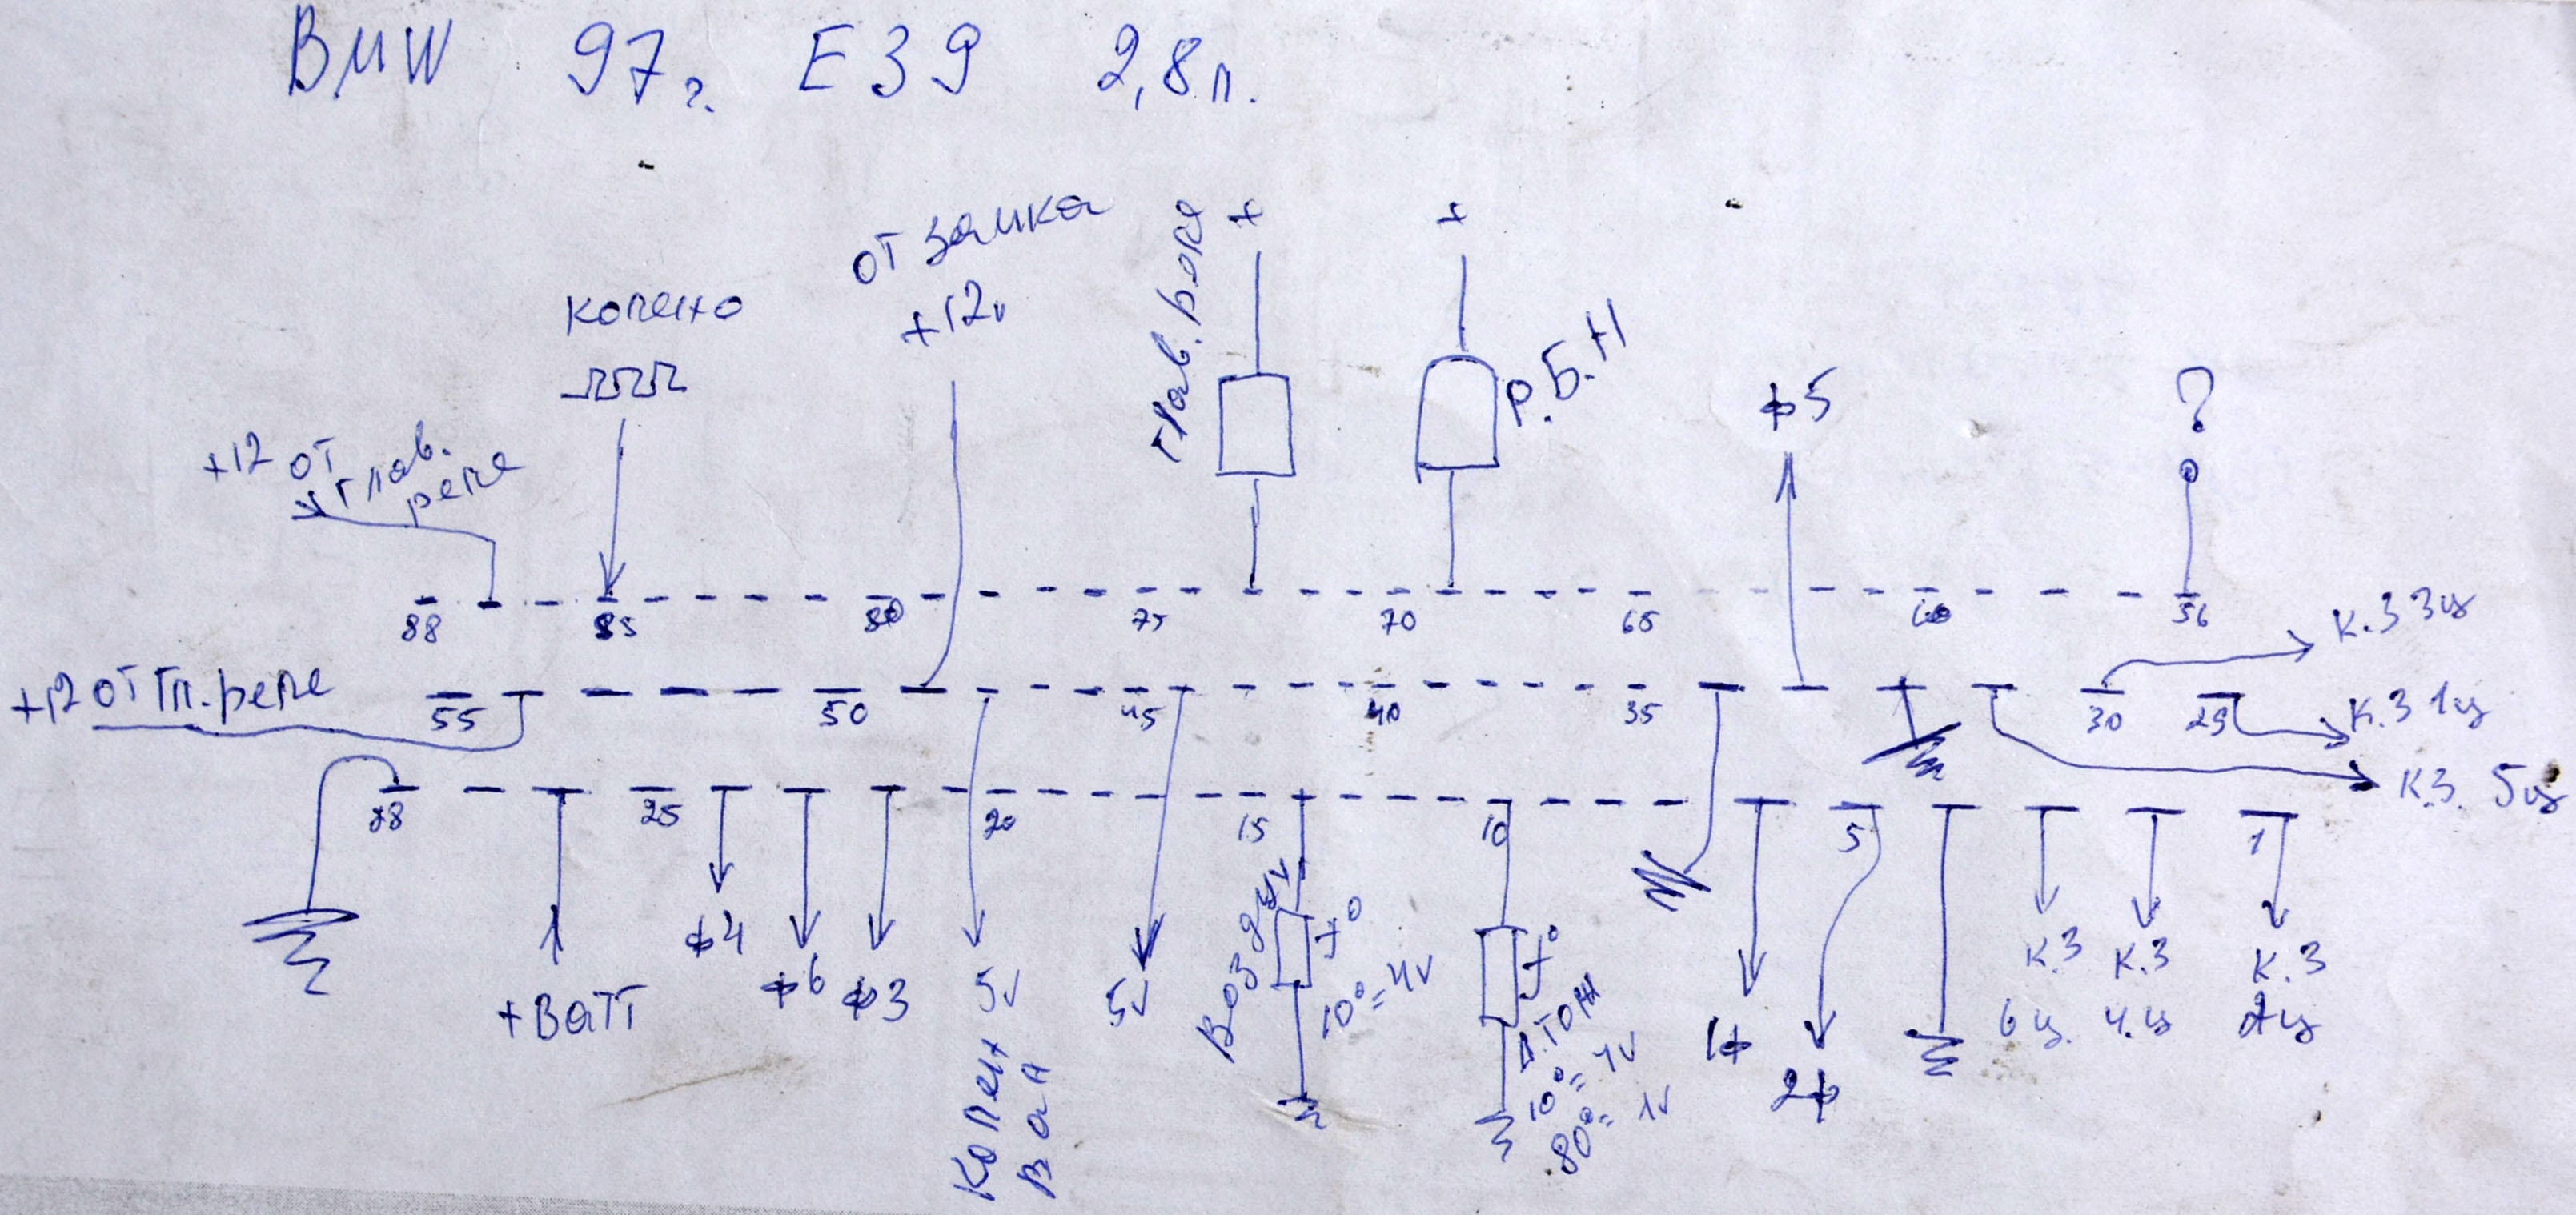 BMW 97г. E39 2,8л.
от замка
+12v
колено
+12 от
глав.
реле
глав. реле
+
+
Р.Б.Н
ф5
?
88 85 80 75 70 65 60 56
К.З 3ц
+12 от гл. реле
55 50 45 40 35 30 29
К.З 1ц
К.З. 5ц
28 25 20 15 10 5 1
+Batt
ф4
ф6
ф3
5v
Колен
Вал
5v
Возд
4v
t°
10°=4v
t°
10°= 4v
80°= 1v
1ф
2ф
К.З
6ц.
К.З
4.ц
К.З
2ц